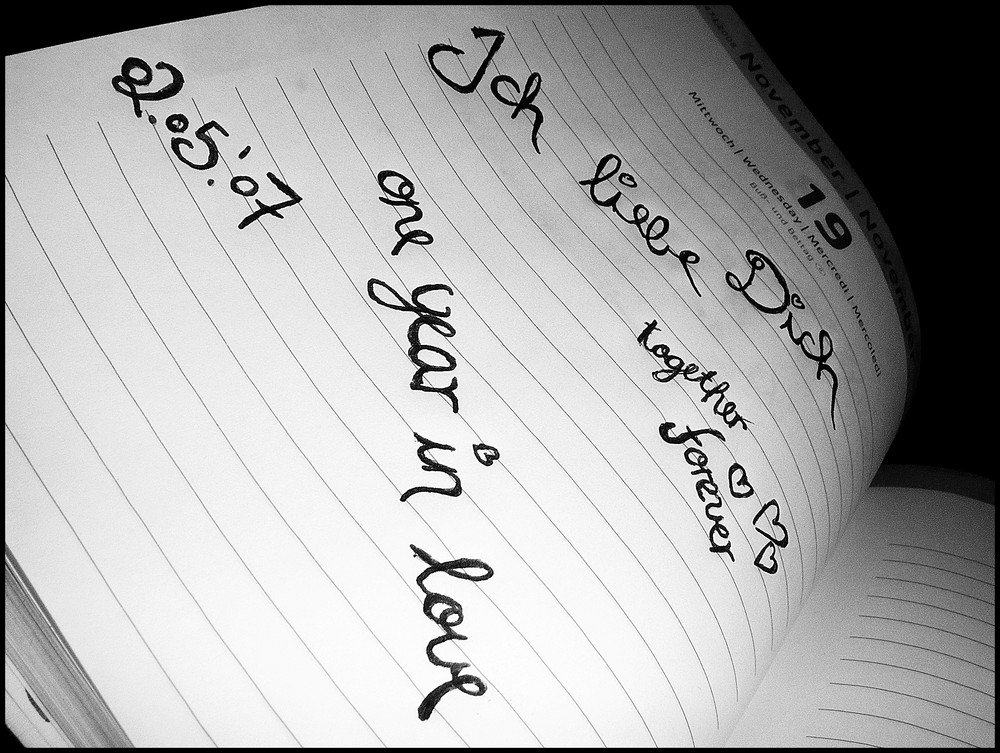 November | November
19
Mittwoch | Wednesday | Mercredi | Mercoledì
Buß- und Bettag
Ich liebe Dich
together
forever
one year in love
2.05.'07